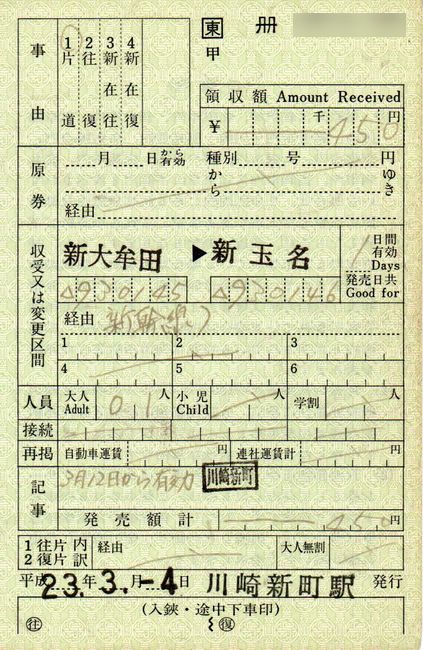 東 冊
甲
事由
1片道
2往復
3新在往
4新在復
領収額 Amount Received
¥ 千 450 円
原券
月 日から有効 種別 号 円
から ゆき
経由
収受又は変更区間
新大牟田 ▶ 新玉名
1日間有効 Days
発売日共 Good for
△930145 △930146
経由 新幹線
1 2 3
4 5 6
人員 大人 Adult 01 人 小児 Child 人 学割 人
接続
再掲 自動車運賃 円 連社運賃計 円
記事 3月12日から有効 川崎新町
発売額計 450
1往片内 2復片訳 経由 大人無割
平成 23年 3月 -4日 川崎新町駅 発行
(入鋏・途中下車印)
往 復